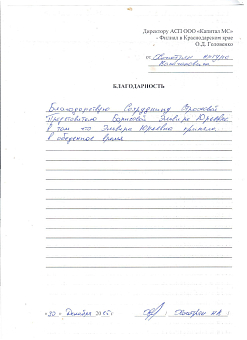 Директору АСП ООО «Капитал МС»
- Филиал в Краснодарском крае
О.Д. Головенко
от
БЛАГОДАРНОСТЬ
Благодарствую Сотруднице Страховой
Представителю Борисовой Эльвире Юрьевне
в том что Эльвира Юрьевна приняла
в обеденное время
«30» Декабря